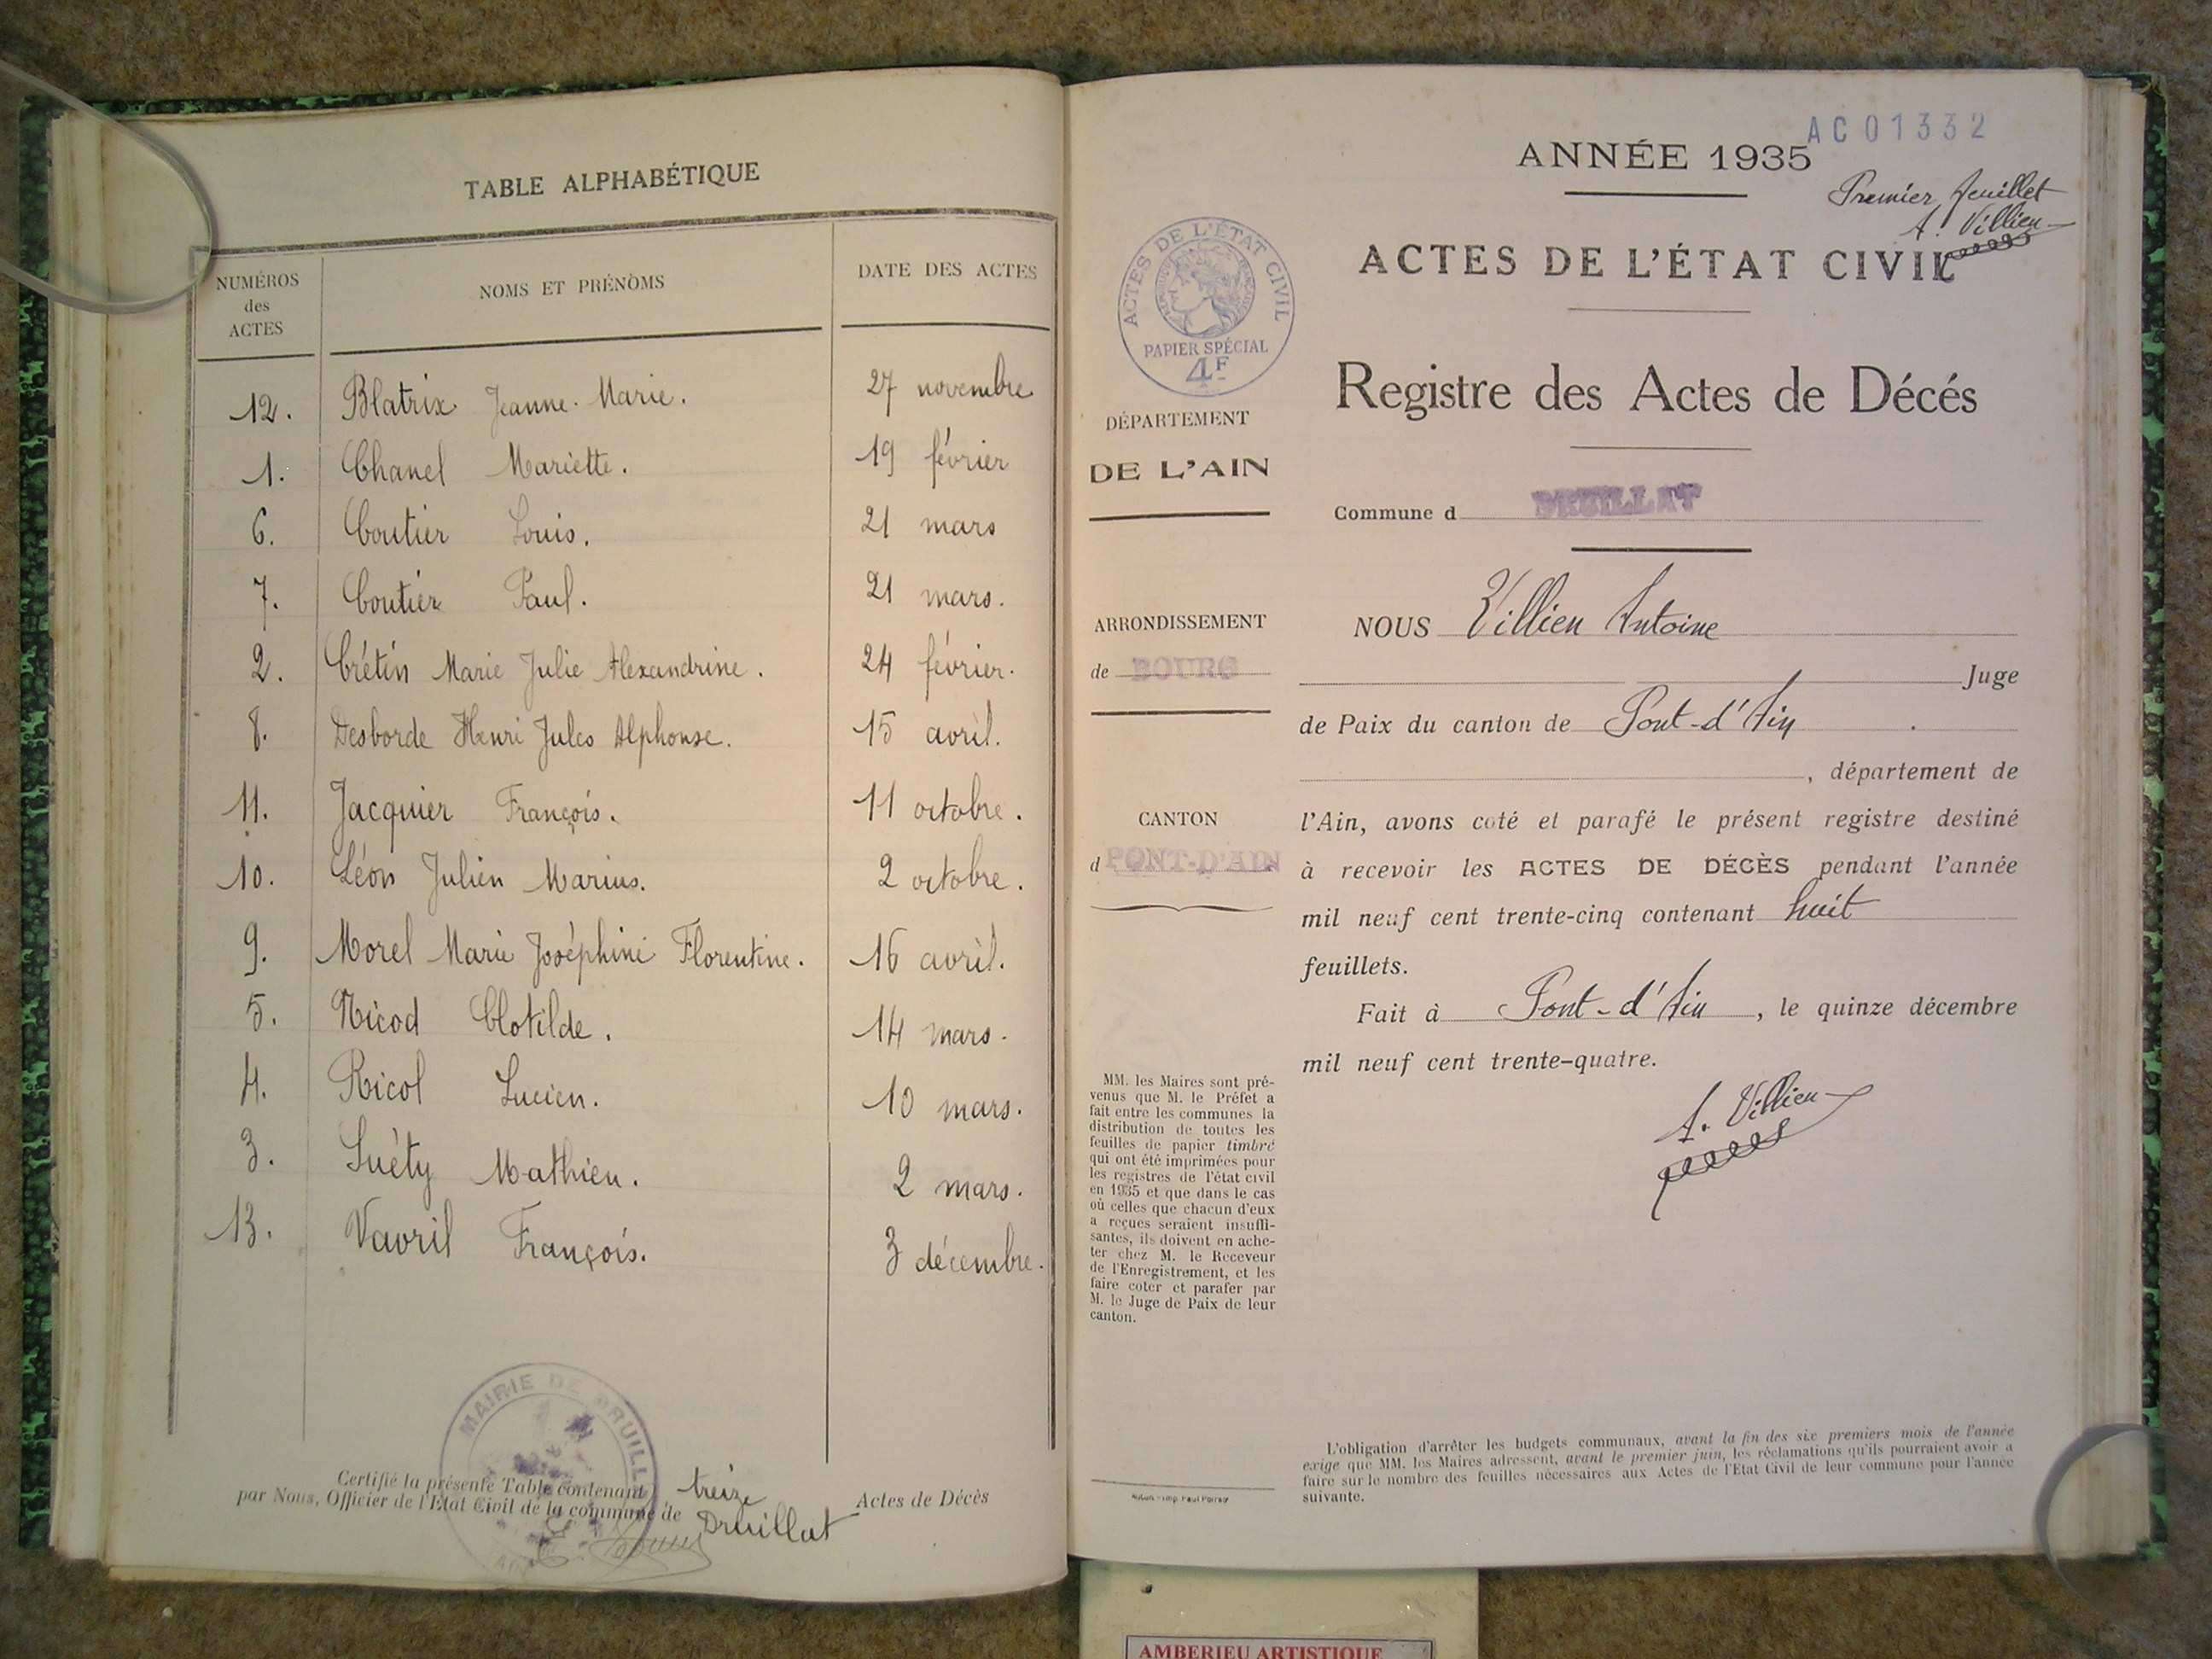 TABLE ALPHABÉTIQUE
NUMÉROS des ACTES
NOMS ET PRÉNOMS
DATE DES ACTES
12. Blatrix Jeanne-Marie. 27 novembre
1. Chanel Mariette. 19 février
6. Coutier Louis. 21 mars
7. Coutier Paul. 21 mars.
2. Crétin Marie Julie Alexandrine. 24 février.
8. Desborde Henri Jules Alphonse. 15 avril.
11. Jacquier François. 11 octobre.
10. Léon Julien Marius. 2 octobre.
9. Morel Marie Joséphine Florentine. 16 avril.
5. Nicod Clotilde. 14 mars.
4. Ricol Lucien. 10 mars.
3. Suéty Mathieu. 2 mars.
13. Vavril François. 3 décembre.
MAIRIE DE DRUILL
Certifié la présente Table contenant treize Actes de Décès
par Nous, Officier de l'Etat Civil de la commune de Druillat
AC01332
ANNÉE 1935
Premier feuillet
A. Villien
ACTES DE L'ÉTAT CIVIL
ACTES DE L'ÉTAT CIVIL
PAPIER SPÉCIAL
4F
Registre des Actes de Décés
DÉPARTEMENT
DE L'AIN
Commune d DRUILLAT
ARRONDISSEMENT
de BOURG
CANTON
d PONT-D'AIN
NOUS Villien Antoine
Juge
de Paix du canton de Pont-d'Ain
, département de
l'Ain, avons coté et parafé le présent registre destiné
à recevoir les ACTES DE DÉCÈS pendant l'année
mil neuf cent trente-cinq contenant huit
feuillets.
Fait à Pont-d'Ain, le quinze décembre
mil neuf cent trente-quatre.
A. Villien
MM. les Maires sont pré-
venus que M. le Préfet a
fait entre les communes la
distribution de toutes les
feuilles de papier timbré
qui ont été imprimées pour
les registres de l'état civil
en 1935 et que dans le cas
où celles que chacun d'eux
a reçues seraient insuffi-
santes, ils doivent en ache-
ter chez M. le Receveur
de l'Enregistrement, et les
faire coter et parafer par
M. le Juge de Paix de leur
canton.
L'obligation d'arrêter les budgets communaux, avant la fin des six premiers mois de l'année
exige que MM. les Maires adressent, avant le premier juin, les réclamations qu'ils pourraient avoir a
faire sur le nombre des feuilles nécessaires aux Actes de l'Etat Civil de leur commune pour l'année
suivante.
AMBERIEU ARTISTIQUE